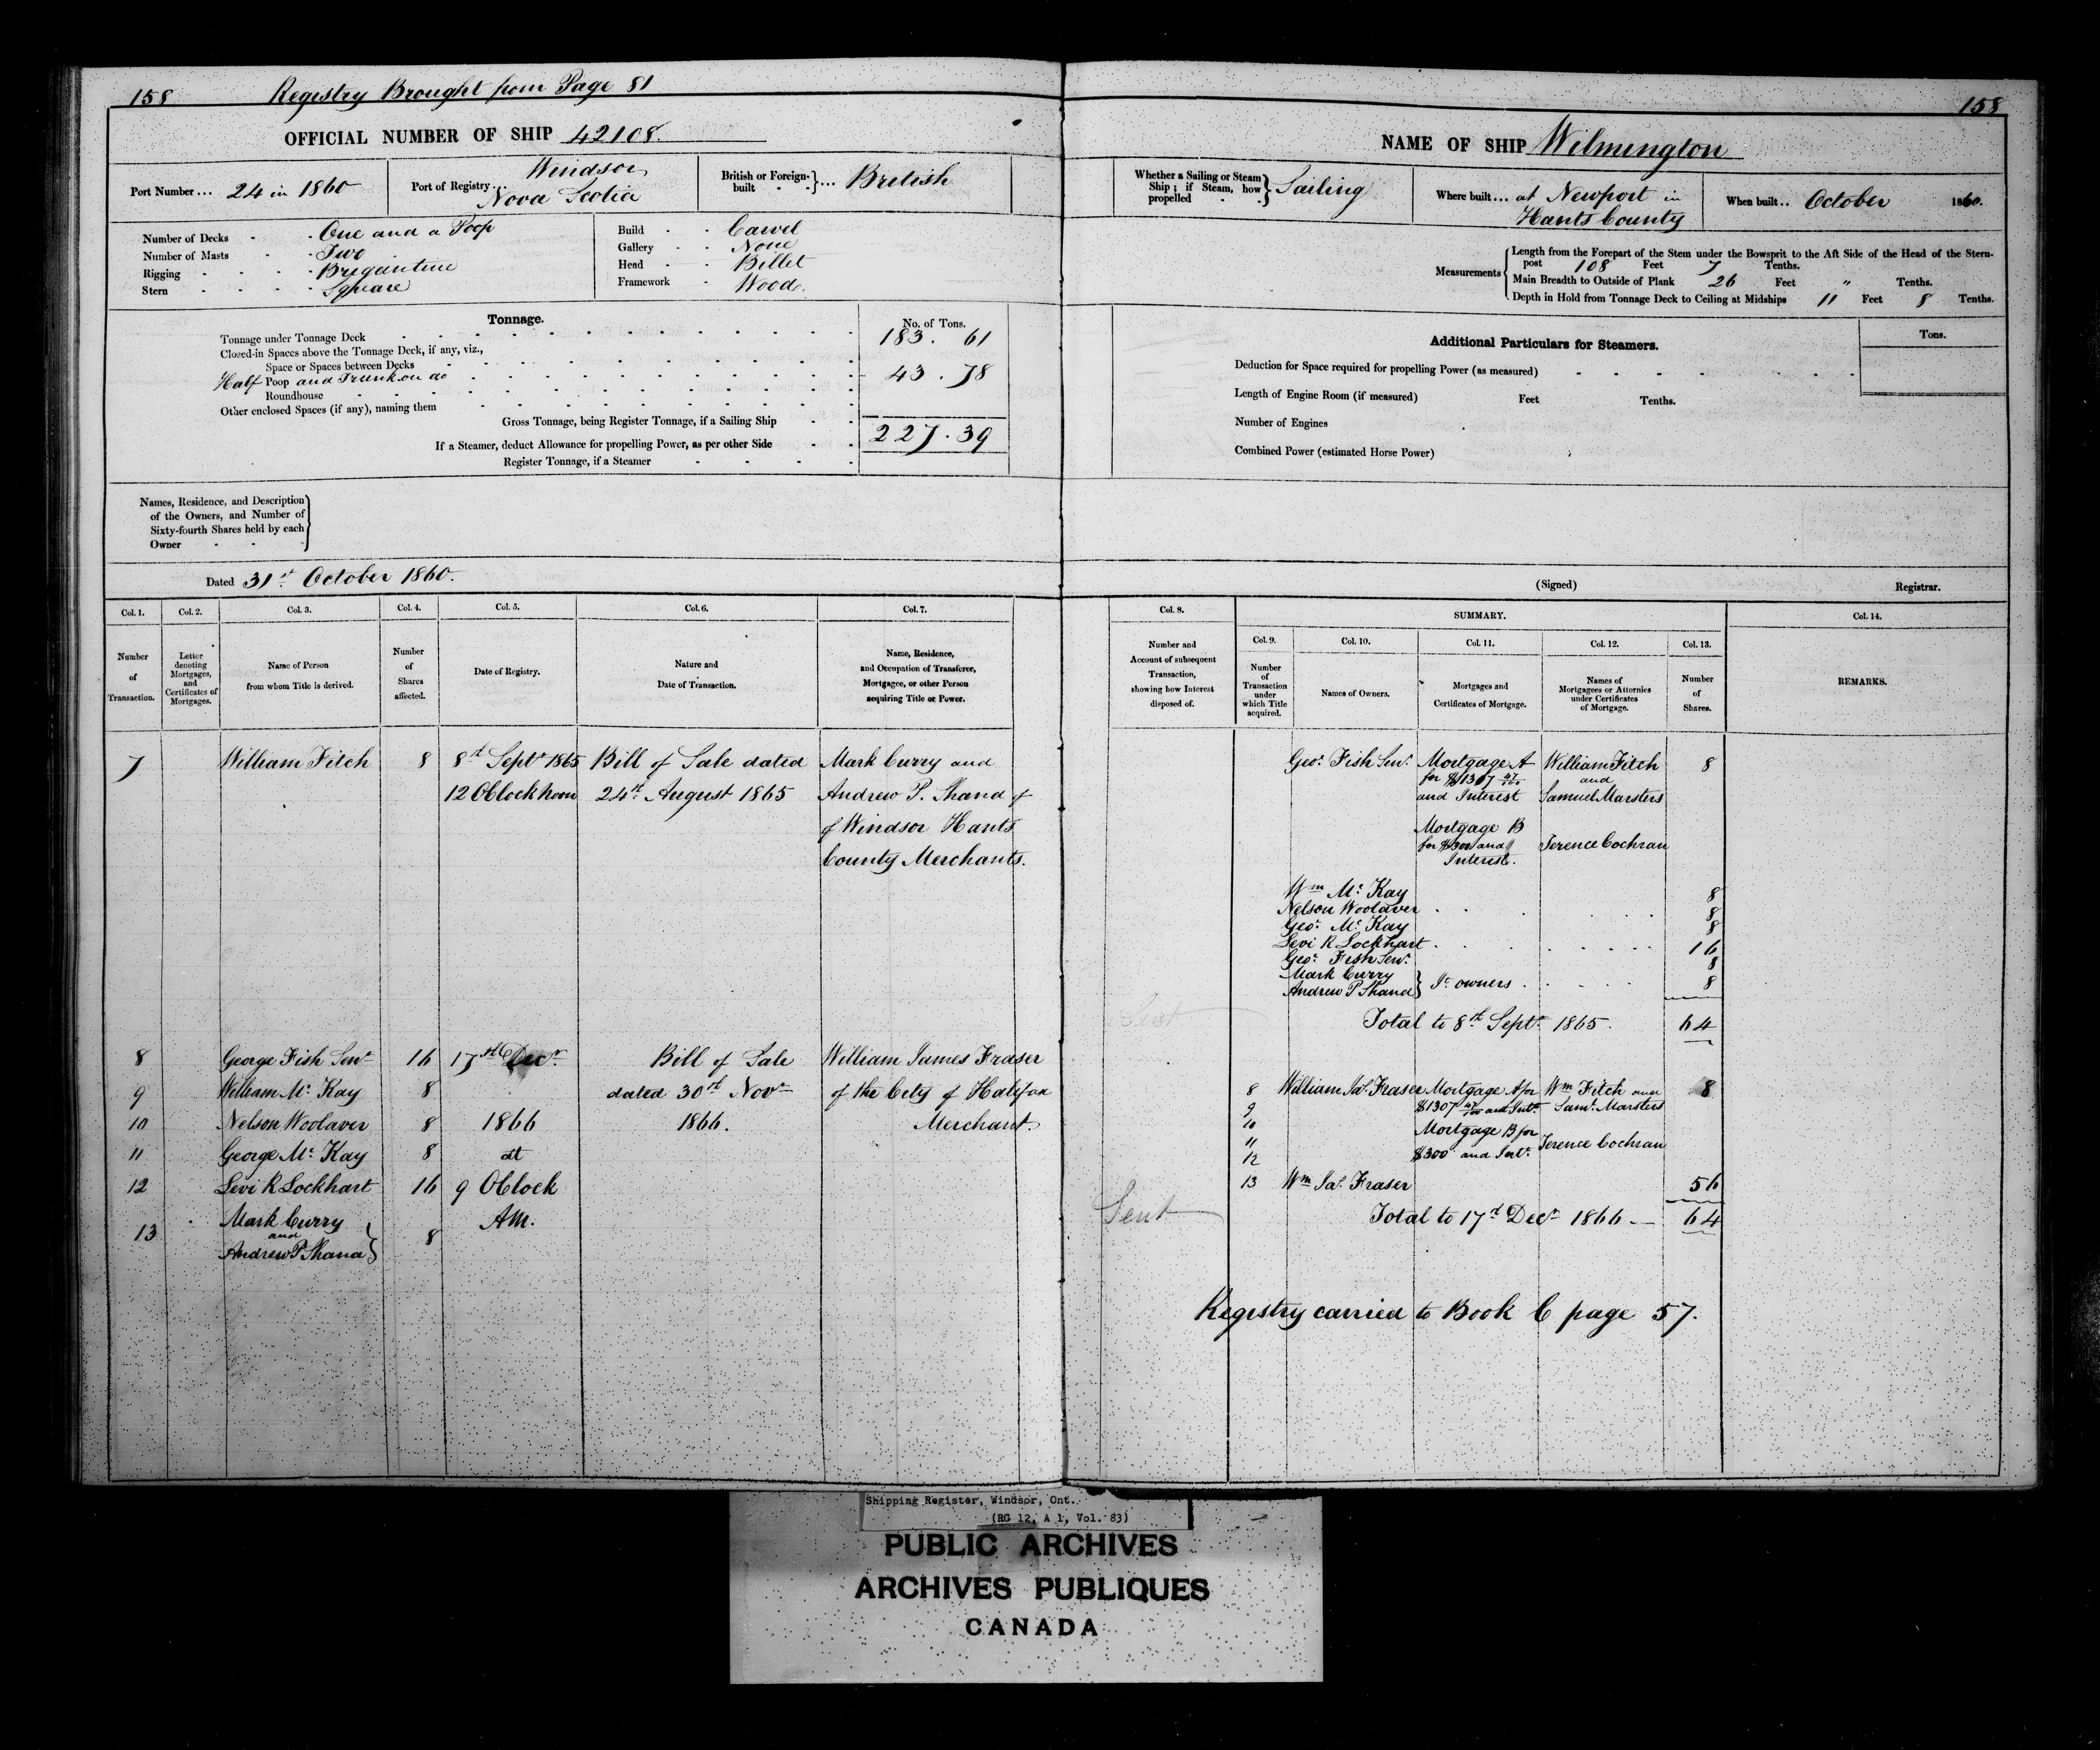 158 Registry Brought from Page 81
OFFICIAL NUMBER OF SHIP 42108.
Port Number... 24 in 1860
Port of Registry.. Windsor,
Nova Scotia
British or Foreign-built } ... British
Number of Decks - One and a Poop
Number of Masts - Two
Rigging - Brigantine
Stern - Square
Build - Carvel
Gallery - None
Head - Billet
Framework - Wood.
Tonnage.
No. of Tons.
Tonnage under Tonnage Deck 183. 61
Closed-in Spaces above the Tonnage Deck, if any, viz.,
Space or Spaces between Decks
Half Poop and Trunk on do 43. 78
Roundhouse
Other enclosed Spaces (if any), naming them
Gross Tonnage, being Register Tonnage, if a Sailing Ship 227. 39
If a Steamer, deduct Allowance for propelling Power, as per other Side
Register Tonnage, if a Steamer
Names, Residence, and Description
of the Owners, and Number of
Sixty-fourth Shares held by each
Owner
Dated 31st October 1860.
Col. 1. Col. 2. Col. 3. Col. 4. Col. 5. Col. 6. Col. 7.
Number of Transaction.
Letter denoting Mortgages, and Certificates of Mortgages.
Name of Person from whom Title is derived.
Number of Shares affected.
Date of Registry.
Nature and Date of Transaction.
Name, Residence, and Occupation of Transferee, Mortgagee, or other Person acquiring Title or Power.
7 William Fitch 8 8th Septr 1865 Bill of Sale dated Mark Curry and
12 OClock noon 24th August 1865 Andrew P. Shand of
of Windsor Hants
County Merchants.
8 George Fish Senr 16 17th Decr Bill of Sale William James Fraser
9 William Mc Kay 8 dated 30th Novr of the City of Halifax
10 Nelson Woolaver 8 1866 1866. Merchant.
11 George Mc Kay 8 at
12 Levi R Lockhart 16 9 OClock
13 Mark Curry
and
Andrew P Shand } 8 AM.
158
NAME OF SHIP Wilmington
Whether a Sailing or Steam
Ship; if Steam, how
propelled } Sailing
Where built... at Newport in
Hants County
When built.. October 1860.
Measurements
Length from the Forepart of the Stem under the Bowsprit to the Aft Side of the Head of the Stern-
post 108 Feet 7 Tenths.
Main Breadth to Outside of Plank 26 Feet " Tenths.
Depth in Hold from Tonnage Deck to Ceiling at Midships 11 Feet 8 Tenths.
Additional Particulars for Steamers.
Tons.
Deduction for Space required for propelling Power (as measured)
Length of Engine Room (if measured) Feet Tenths.
Number of Engines
Combined Power (estimated Horse Power)
(Signed) Registrar.
Col. 8. SUMMARY. Col. 14.
Col. 9. Col. 10. Col. 11. Col. 12. Col. 13.
Number and Account of subsequent Transaction, showing how Interest disposed of.
Number of Transaction under which Title acquired.
Names of Owners.
Mortgages and Certificates of Mortgage.
Names of Mortgagees or Attornies under Certificates of Mortgage.
Number of Shares.
REMARKS.
Geo. Fish Senr. Mortgage A William Fitch 8
for $1307 47/100 and
and Interest Samuel Marsters
Mortgage B
for $300 and Terence Cochran
Interest.
Wm Mc Kay 8
Nelson Woolaver 8
Geo. Mc Kay 8
Levi R Lockhart 16
Geo. Fish Senr. 8
Mark Curry
Andrew P Shand } Jt owners 8
Sent
Total to 8th Septr 1865. 64
8 William Jas. Fraser Mortgage A for Wm Fitch and 8
9 $1307 47/100 and Intt. Saml. Marsters
10 Mortgage B for
11 Terence Cochran
12 $300 and Intt.
13 Wm Jas. Fraser 56
Sent
Total to 17th Decr 1866 — 64
Registry carried to Book C page 57.
Shipping Register, Windsor, Ont.
(RG 12, A 1, Vol. 83)
PUBLIC ARCHIVES
ARCHIVES PUBLIQUES
CANADA